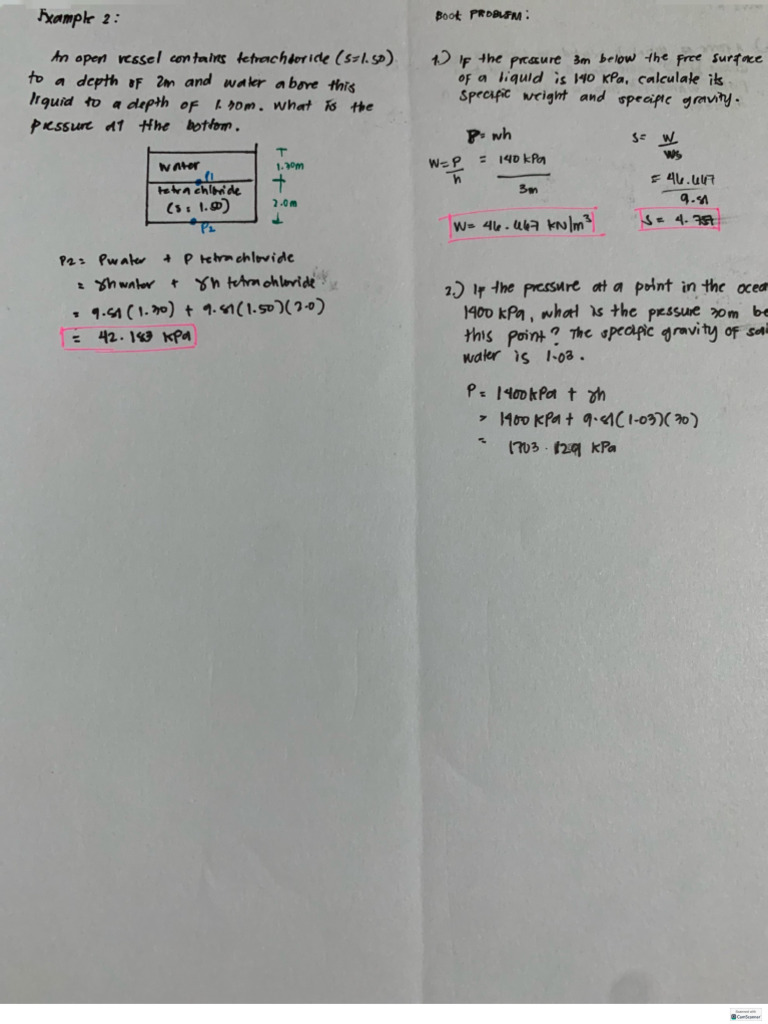 Example 2:
An open vessel contains tetrachloride (s=1.50)
to a depth of 2m and water above this
liquid to a depth of 1.30m. What is the
pressure at the bottom.
water
P1
tetrachloride
(s: 1.50)
P2
1.30m
2.0m
P2 = Pwater + P tetrachloride
= γhwater + γh tetrachloride
= 9.81(1.30) + 9.81(1.50)(2.0)
= 42.183 kPa
Book PROBLEM:
1.) If the pressure 3m below the free surface
of a liquid is 140 kPa, calculate its
specific weight and specific gravity.
P = wh
W = P/h = 140 kPa / 3m
W = 46.667 kN/m³
S = W/Ws
= 46.667 / 9.81
S = 4.757
2.) If the pressure at a point in the ocea
1400 kPa, what is the pressure 30m be
this point? The specific gravity of sal
water is 1.03.
P = 1400 kPa + γh
= 1400 kPa + 9.81(1.03)(30)
= 1703.129 kPa
Scanned with
CamScanner